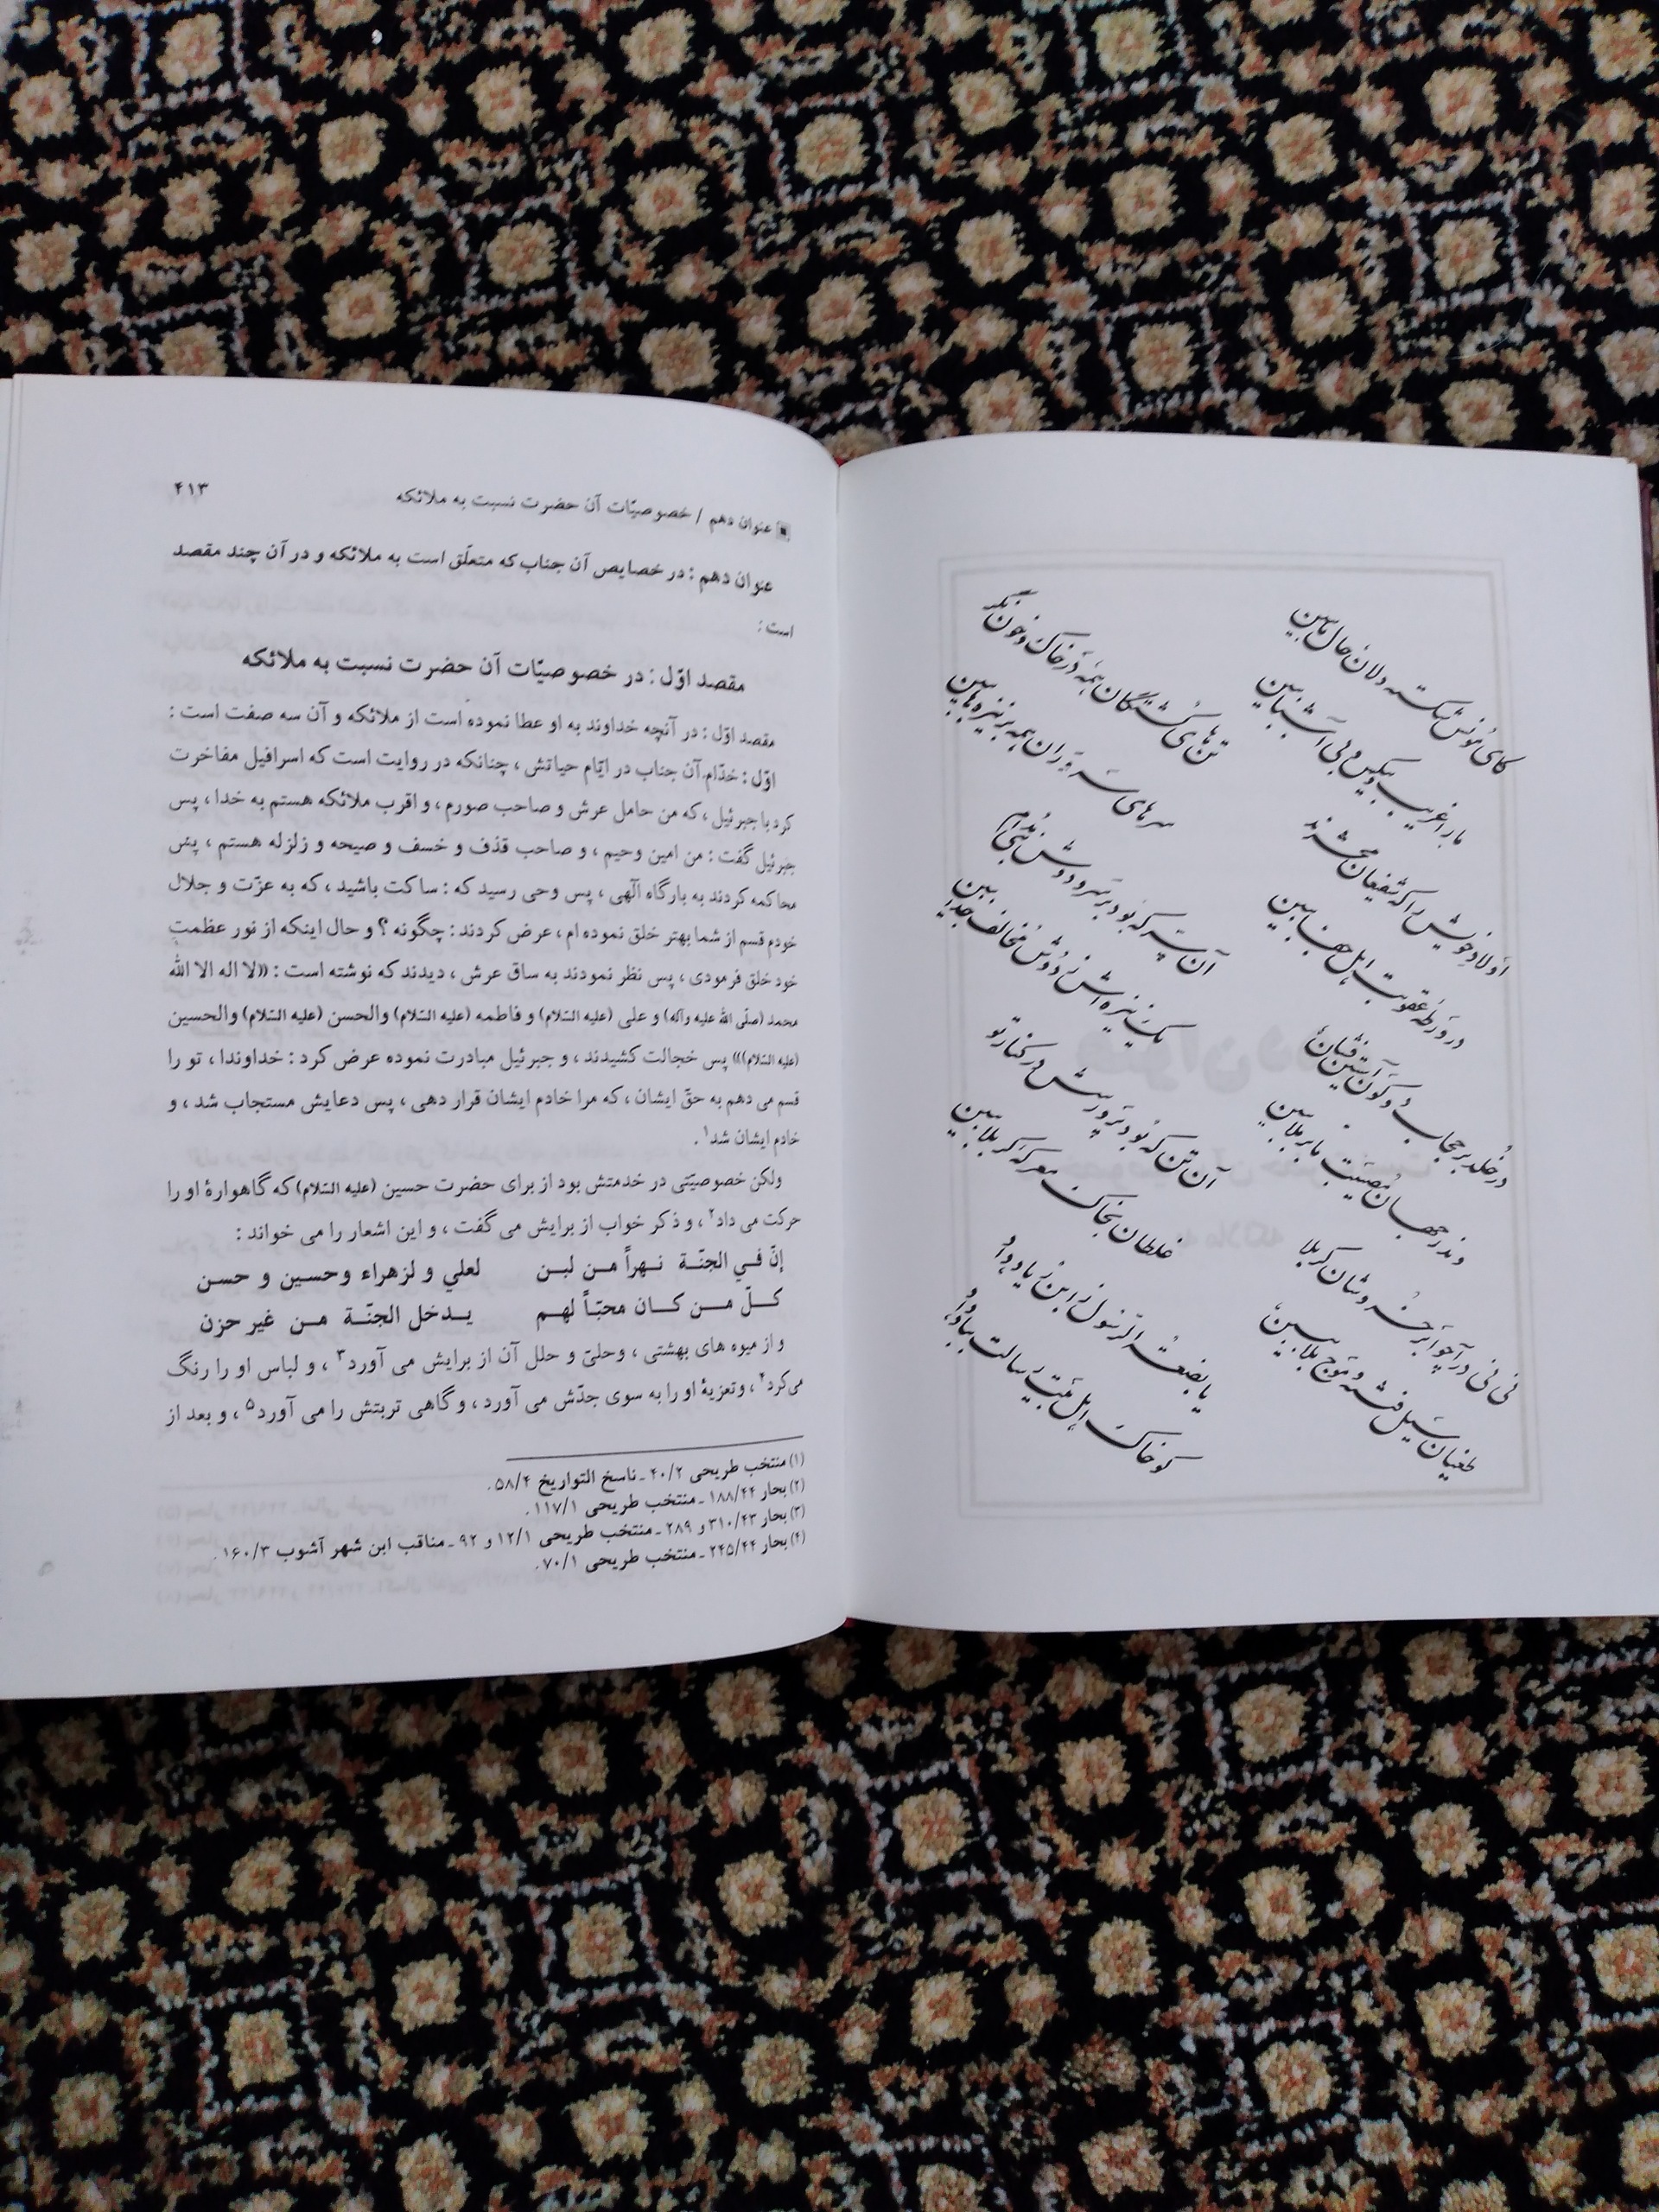 کای مونس شکسته دلان حال ما ببین
ما را غریب و بیکس و بی آشنا ببین
اولاد خویش را که شفیعان محشرند
در ورطه عقوبت اهل جفا ببین
در خلد بر حجاب دو کون آستین فشان
و ندر جهان مصیبت ما بر ملا ببین
نی نی درآ چو ابر خروشان به کربلا
طغیان سیل فتنه و موج بلا ببین
تن های کشتگان همه در خاک و خون نگر
سرهای سروران همه بر نیزه ها ببین
آن سر که بود بر سر دوش نبی مدام
یک نیزه اش ز دوش مخالف جدا ببین
آن تن که بود پرورشش در کنار تو
غلطان بخاک معرکه کربلا ببین
یا بضعة الرسول ز ابن زیاد داد
کو خاک اهل بیت رسالت بباد داد
عنوان دهم / خصوصیّات آن حضرت نسبت به ملائکه ۴۱۳
عنوان دهم : در خصایص آن جناب که متعلّق است به ملائکه و در آن چند مقصد
است :
مقصد اوّل : در خصوصیّات آن حضرت نسبت به ملائکه
مقصد اوّل : در آنچه خداوند به او عطا نموده است از ملائکه و آن سه صفت است :
اوّل : خدّام آن جناب در ایّام حیاتش ، چنانکه در روایت است که اسرافیل مفاخرت
کرد با جبرئیل ، که من حامل عرش و صاحب صورم ، و اقرب ملائکه هستم به خدا ، پس
جبرئیل گفت : من امین وحیم ، و صاحب قذف و خسف و صیحه و زلزله هستم ، پس
محاکمه کردند به بارگاه الٓهی ، پس وحی رسید که : ساکت باشید ، که به عزّت و جلال
خودم قسم از شما بهتر خلق نموده ام ، عرض کردند : چگونه ؟ و حال اینکه از نور عظمت
خود خلق فرمودی ، پس نظر نمودند به ساق عرش ، دیدند که نوشته است : «لا اله الا الله
محمد (صلّی الله علیه وآله) و علی (علیه السّلام) و فاطمه (علیه السّلام) والحسن (علیه السّلام) والحسین
(علیه السّلام)» پس خجالت کشیدند ، و جبرئیل مبادرت نموده عرض کرد : خداوندا ، تو را
قسم می دهم به حقّ ایشان ، که مرا خادم ایشان قرار دهی ، پس دعایش مستجاب شد ، و
خادم ایشان شد۱ .
ولکن خصوصیّتی در خدمتش بود از برای حضرت حسین (علیه السّلام) که گاهوارهٔ او را
حرکت می داد۲ ، و ذکر خواب از برایش می گفت ، و این اشعار را می خواند :
إنّ فـي الجنّـة نـهراً مـن لبـن لعلي و لزهراء وحسين و حسن
كـلّ مـن كـان محبّـاً لهـم يـدخل الجنّـة مـن غير حزن
و از میوه های بهشتی ، وحلیّ و حلل آن از برایش می آورد۳ ، و لباس او را رنگ
می کرد۴ ، وتعزیهٔ او را به سوی جدّش می آورد ، و گاهی تربتش را می آورد۵ ، و بعد از
(۱) منتخب طریحی ۴۰/۲ ـ ناسخ التواریخ ۵۸/۴.
(۲) بحار ۱۸۸/۴۴ ـ منتخب طریحی ۱۱۷/۱.
(۳) بحار ۳۱۰/۴۳ و ۲۸۹ ـ منتخب طریحی ۱۲/۱ و ۹۲ ـ مناقب ابن شهر آشوب ۱۶۰/۳.
(۴) بحار ۲۴۵/۴۴ ـ منتخب طریحی ۷۰/۱.